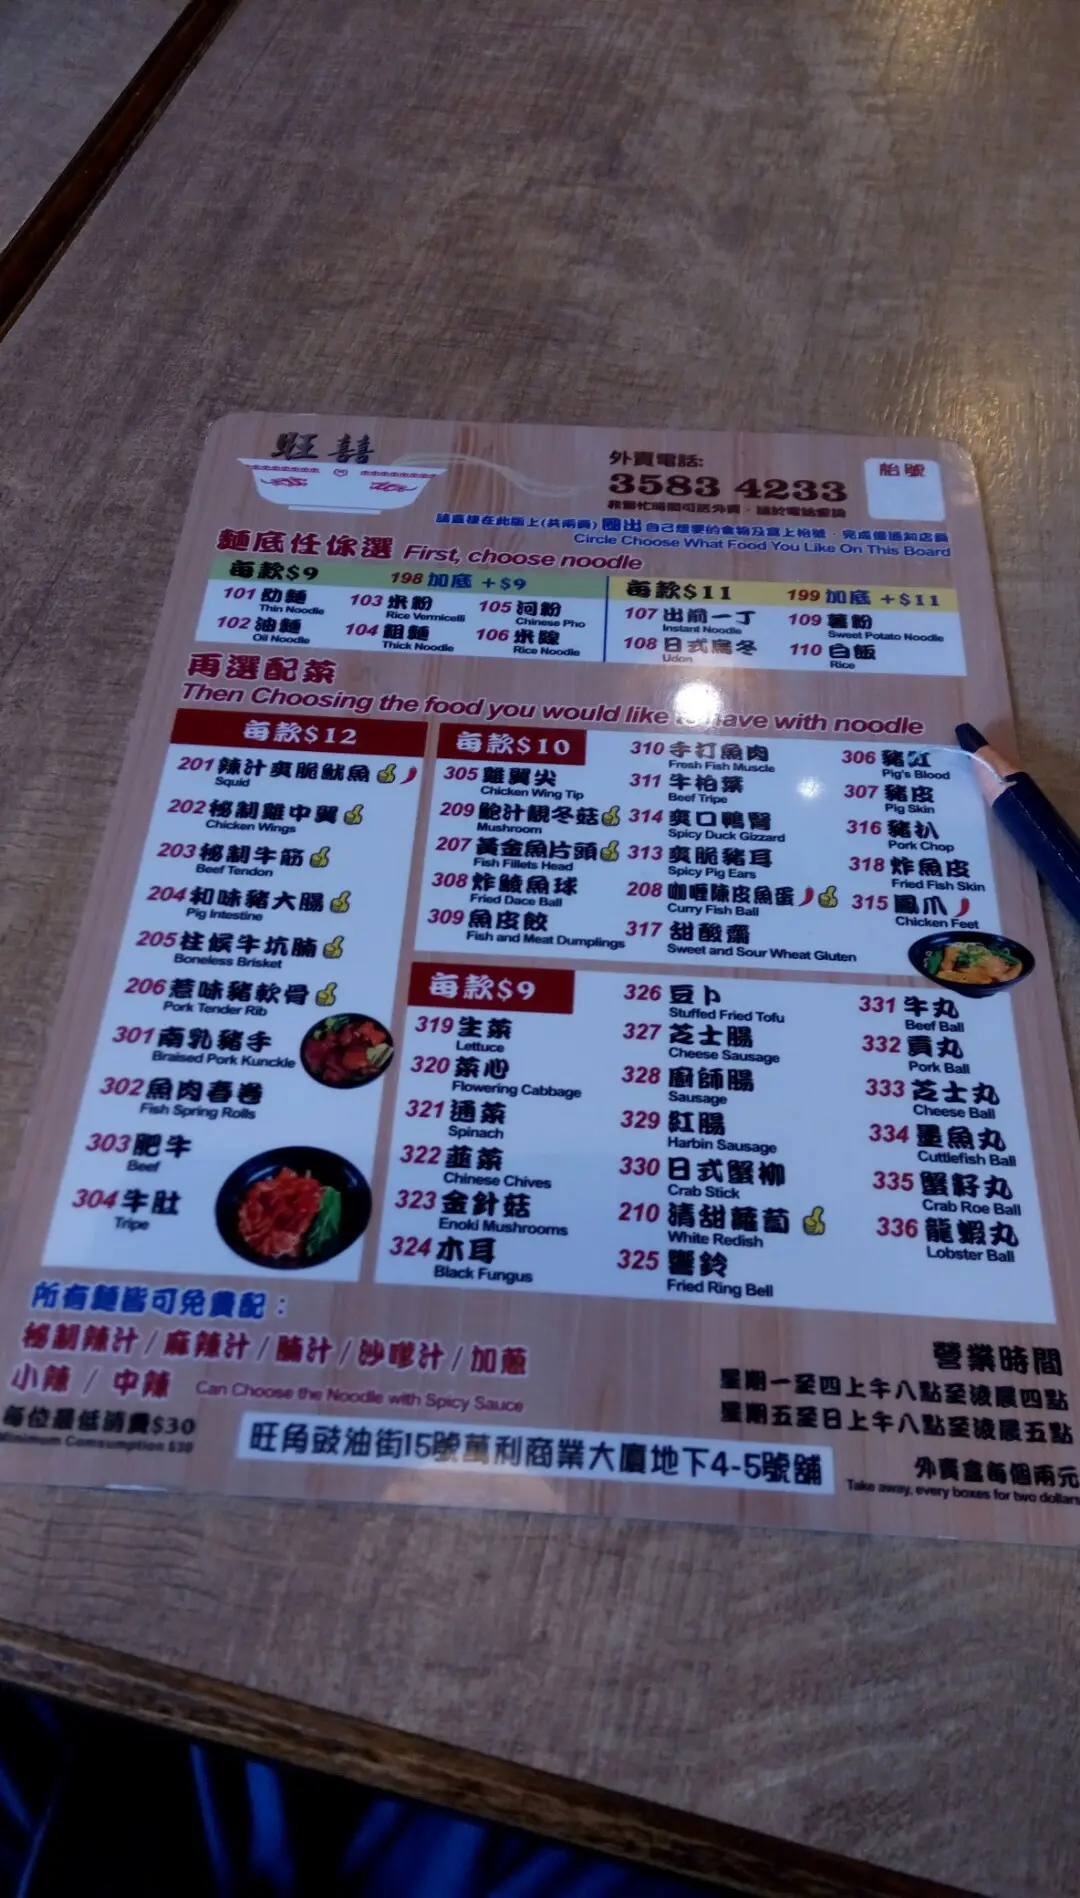 旺囍
外賣電話:
3583 4233
非繁忙時間可送外賣，請於電話查詢
枱號
請直接在此版上(共兩頁) 圈出 自己想要的食物及寫上枱號，完成後通知店員
Circle Choose What Food You Like On This Board
麵底任你選 First, choose noodle
每款$9
198 加底 +$9
101 幼麵
Thin Noodle
103 米粉
Rice Vermicelli
105 河粉
Chinese Pho
102 油麵
Oil Noodle
104 粗麵
Thick Noodle
106 米線
Rice Noodle
每款$11
199 加底 +$11
107 出前一丁
Instant Noodle
109 薯粉
Sweet Potato Noodle
108 日式烏冬
Udon
110 白飯
Rice
再選配菜
Then Choosing the food you would like to have with noodle
每款$12
201 辣汁爽脆魷魚
Squid
202 秘制雞中翼
Chicken Wings
203 秘制牛筋
Beef Tendon
204 和味豬大腸
Pig Intestine
205 柱候牛坑腩
Boneless Brisket
206 惹味豬軟骨
Pork Tender Rib
301 南乳豬手
Braised Pork Kunckle
302 魚肉春卷
Fish Spring Rolls
303 肥牛
Beef
304 牛肚
Tripe
每款$10
305 雞翼尖
Chicken Wing Tip
209 鮑汁靚冬菇
Mushroom
207 黃金魚片頭
Fish Fillets Head
308 炸鯪魚球
Fried Dace Ball
309 魚皮餃
Fish and Meat Dumplings
310 手打魚肉
Fresh Fish Muscle
311 牛柏葉
Beef Tripe
314 爽口鴨腎
Spicy Duck Gizzard
313 爽脆豬耳
Spicy Pig Ears
208 咖喱陳皮魚蛋
Curry Fish Ball
317 甜酸齋
Sweet and Sour Wheat Gluten
306 豬紅
Pig's Blood
307 豬皮
Pig Skin
316 豬扒
Pork Chop
318 炸魚皮
Fried Fish Skin
315 鳳爪
Chicken Feet
每款$9
319 生菜
Lettuce
320 菜心
Flowering Cabbage
321 通菜
Spinach
322 韮菜
Chinese Chives
323 金針菇
Enoki Mushrooms
324 木耳
Black Fungus
326 豆卜
Stuffed Fried Tofu
327 芝士腸
Cheese Sausage
328 廚師腸
Sausage
329 紅腸
Harbin Sausage
330 日式蟹柳
Crab Stick
210 清甜蘿蔔
White Redish
325 響鈴
Fried Ring Bell
331 牛丸
Beef Ball
332 貢丸
Pork Ball
333 芝士丸
Cheese Ball
334 墨魚丸
Cuttlefish Ball
335 蟹籽丸
Crab Roe Ball
336 龍蝦丸
Lobster Ball
所有麵皆可免費配：
秘制辣汁 / 麻辣汁 / 腩汁 / 沙嗲汁 / 加蔥
小辣 / 中辣 Can Choose the Noodle with Spicy Sauce
每位最低消費$30
Minimum Comsumption $30
旺角豉油街15號萬利商業大廈地下4-5號舖
營業時間
星期一至四上午八點至淩晨四點
星期五至日上午八點至淩晨五點
外賣盒每個兩元
Take away, every boxes for two dollars